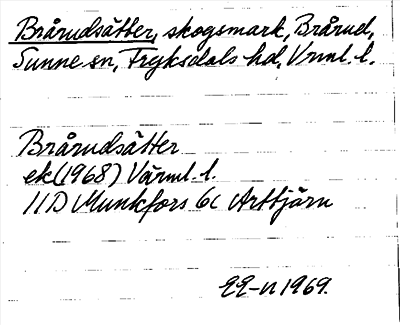 Brårudsätter, skogsmark, Brårud,
Sunne sn, Fryksdals hd, Vrml. l.
Brårudsätter
ek (1968) Värml. l.
11D Munkfors 6c Arttjärn
1969.